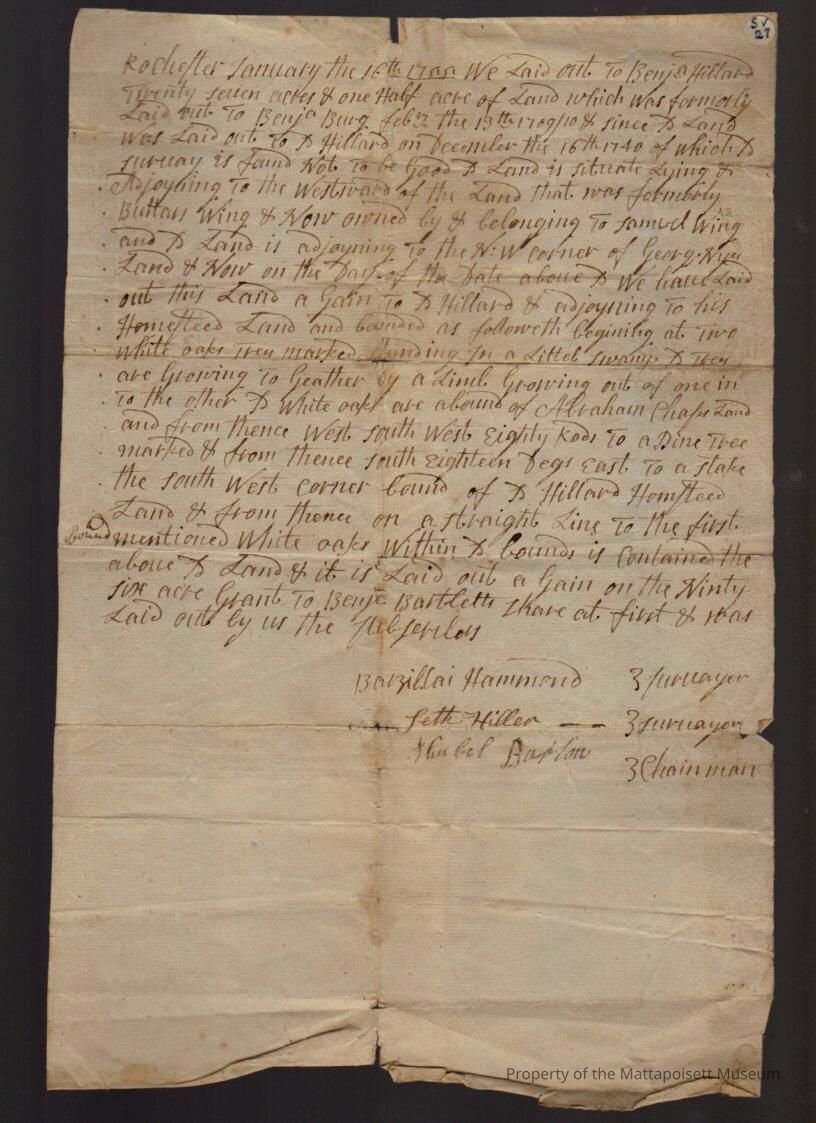 SV
27
Rochester January the 16th We Laid out To Benja Hillard
Twenty seuen acres & one Half acre of Land which was formorly
Laid out To Benja Burg feb the 13th 1709/10 & since D Land
was Laid out to D Hillard on December the 16th 1740 of which D
suruay is found Not To be Good D Land is situate Lying &
Adjoyning To the Westward of the Land that was formorly
Buttars Wing & Now owned by & belonging To Samuel Wing
and D Land is adjoyning to the N:W corner of Georg
Land & Now on the Day of the Date aboue D We haue Laid
out this Land a Gain To D Hillard & adjoyning to his
Homesteed Land and bounded as followeth begining at Two
white oaks trees marked standing In a Littel swamp D Trees
are Growing To Geather by a Limb Growing out of one in
To the other D White oaks are a bound of Abraham Land
and from thence West South West Eighty Rods To a Pine Tree
marked & from thence South Eighteen Degs East To a stake
the South West corner bound of D Hillard Homsteed
Land & from thence on a straight Line To the first
bound mentioned White oaks Within D bounds is contained the
aboue D Land & it is Laid out a Gain on the Ninty
six acre Grant To Benja Bartletts share at first & was
Laid out by us the subscribers
Barzillai Hammond 3 suruayer
Seth Hiller — 3 suruayer
Shubel Barlow
3 Chainman
Property of the Mattapoisett Museum